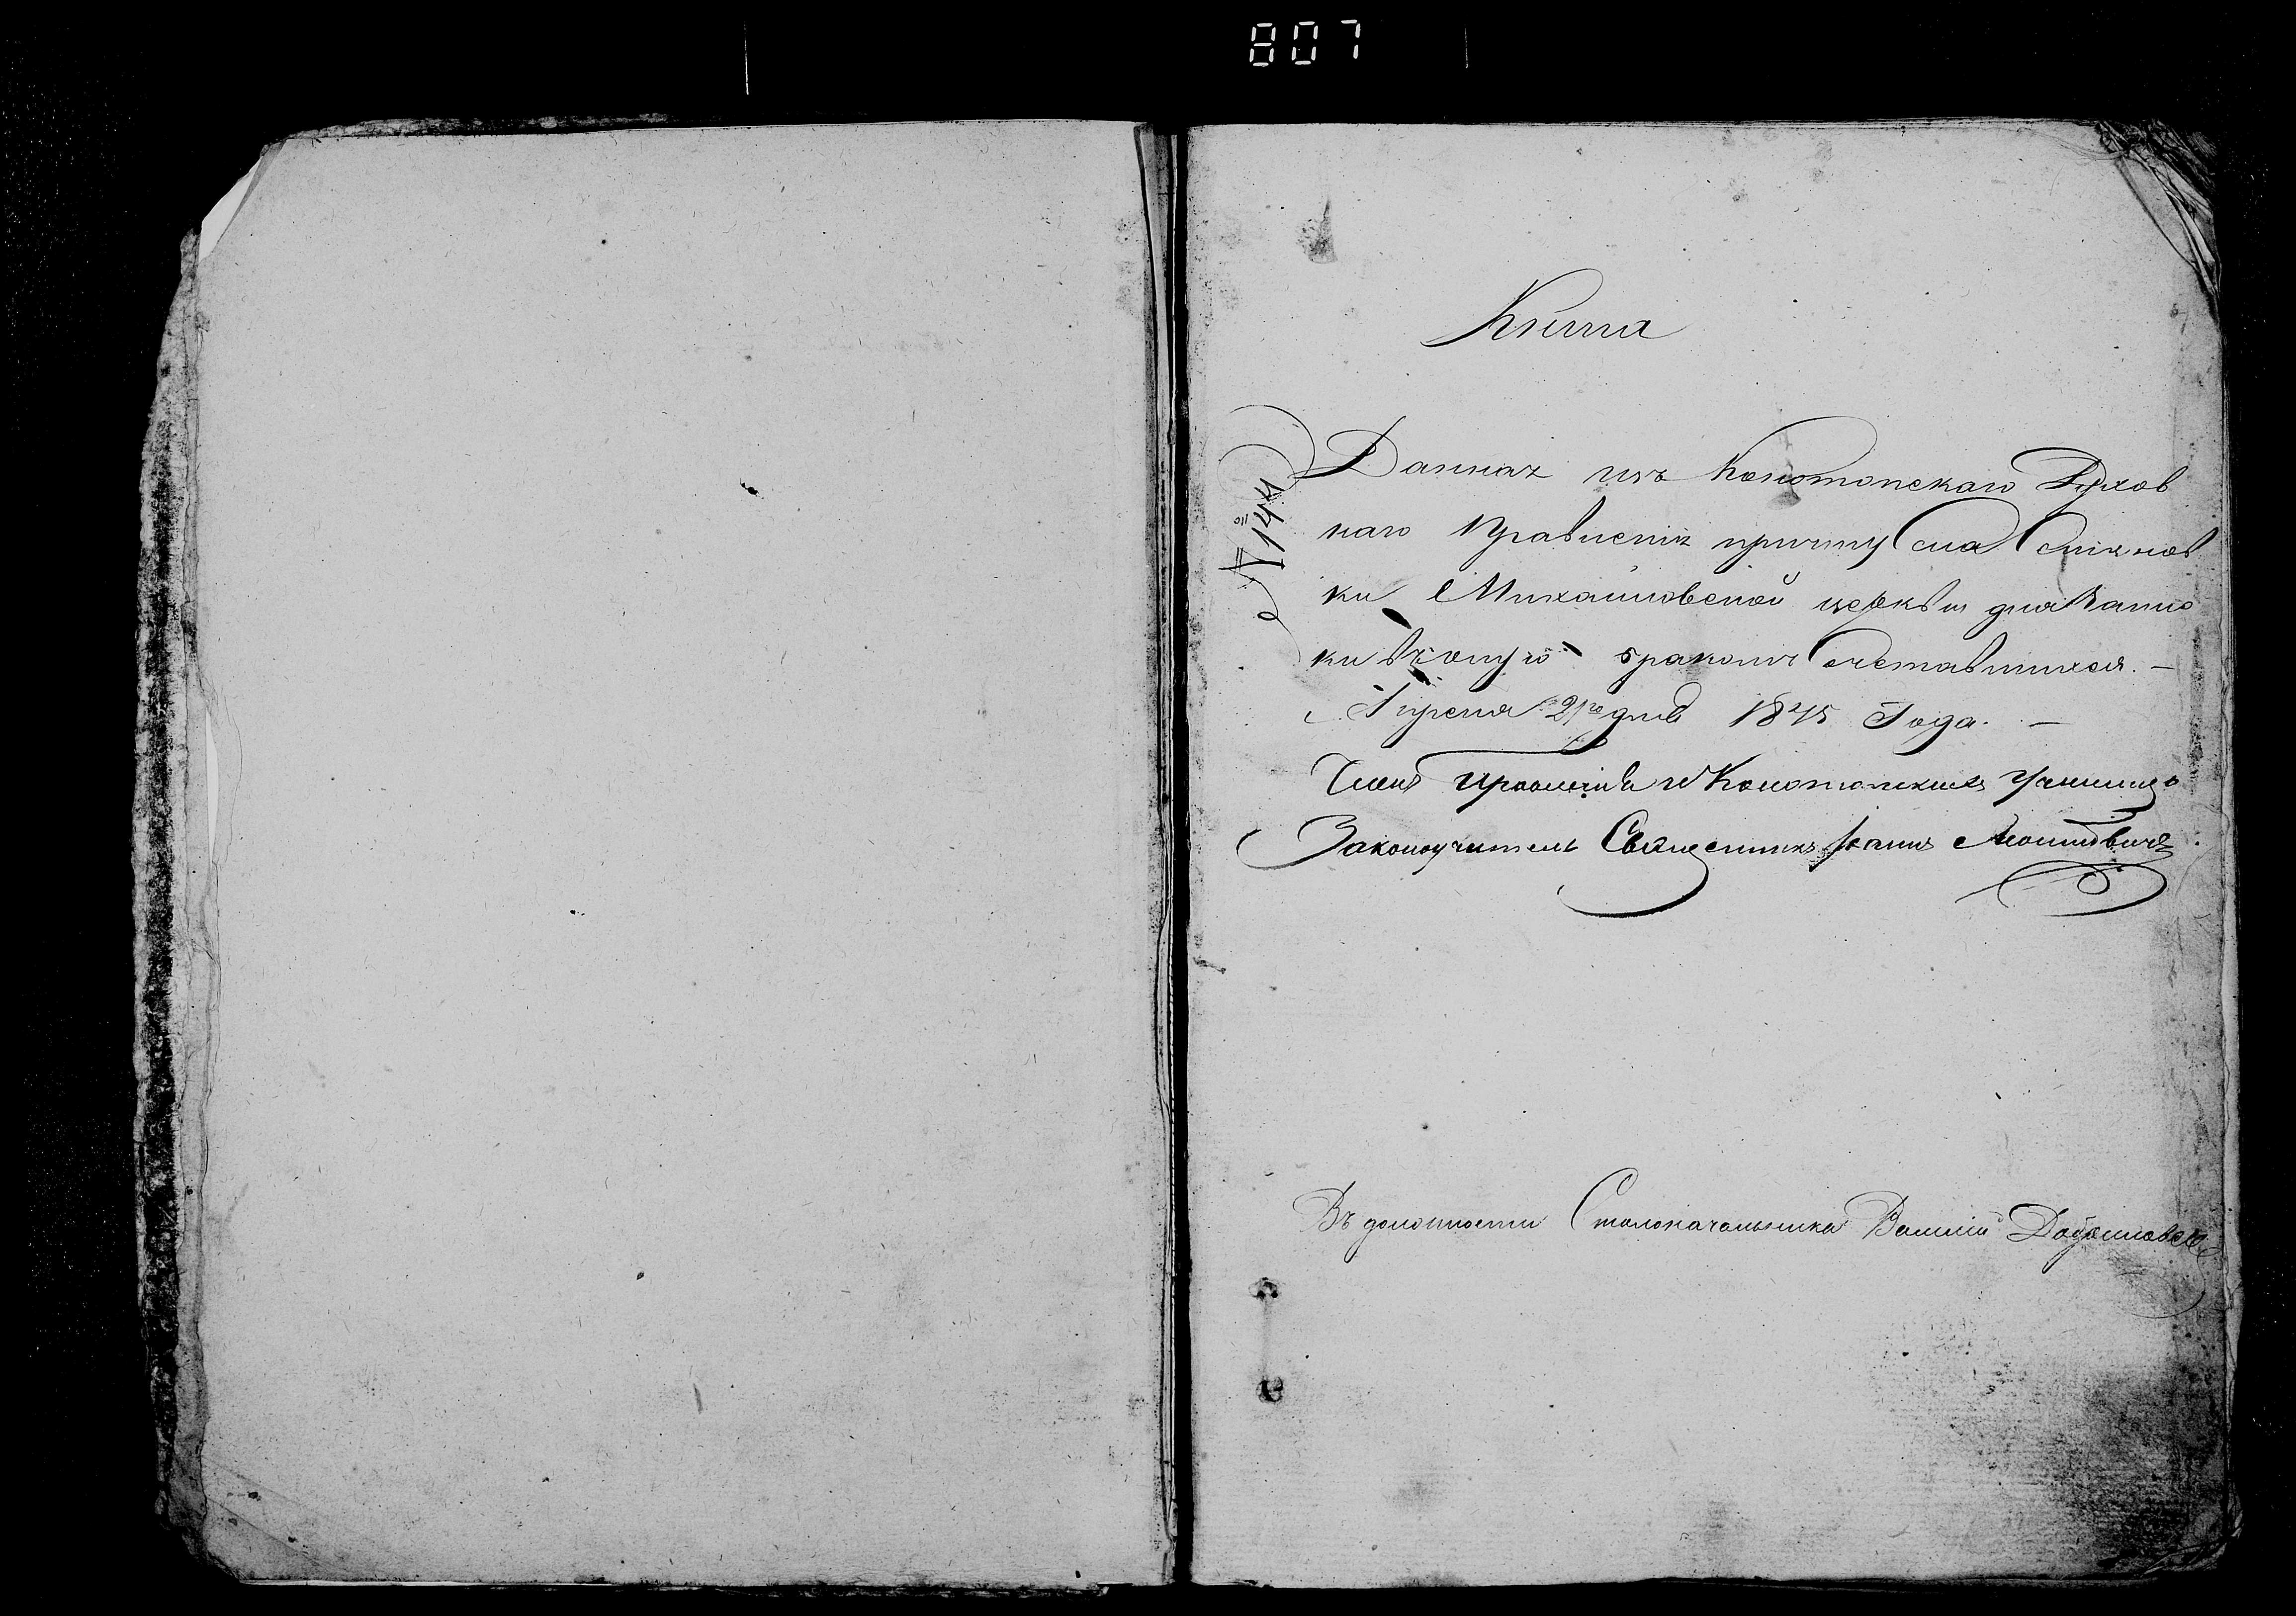 807
Книга
№ 144
Данная изъ Конотопскаго Духов
наго Правленія причту села
ки Михайловской церкви для запис
ки бракомъ сочетавшихся. —
Апреля 21го дня 1845 Года. —
Членъ Правленія и Конотопскихъ Училищъ
Законоучитель Священникъ Іоаннъ
Въ должности Столоначальника Василій